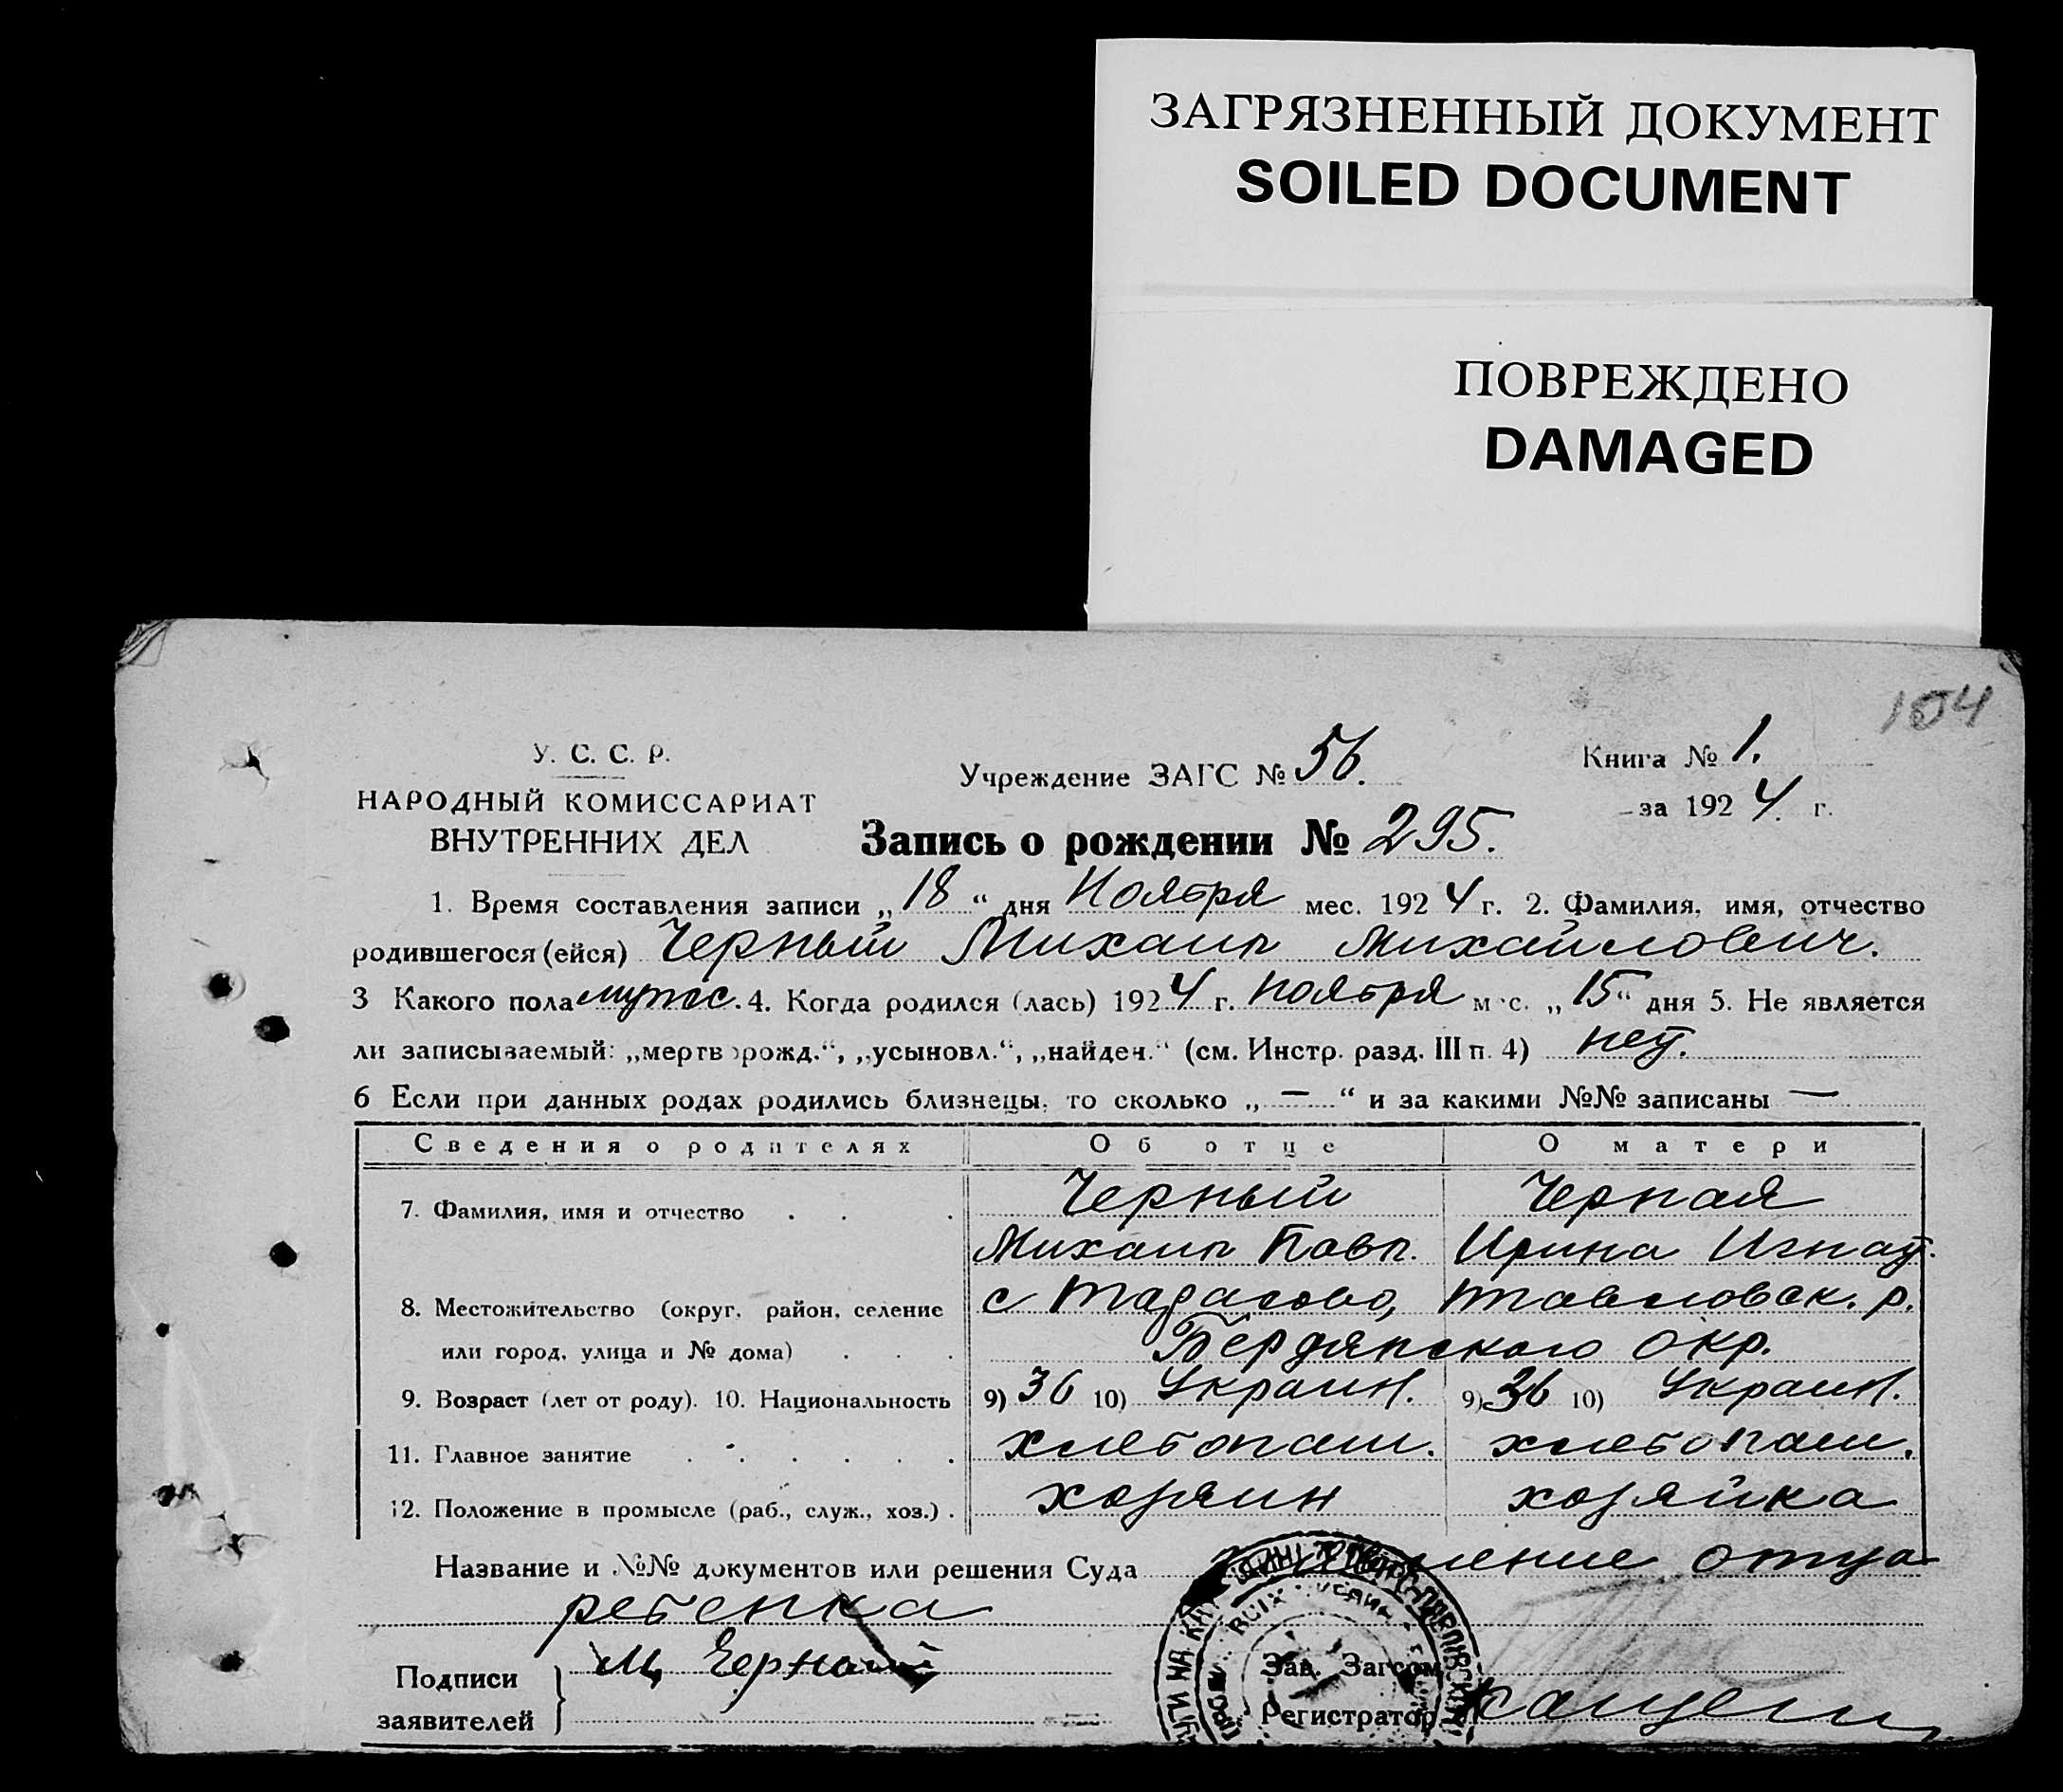 ЗАГРЯЗНЕННЫЙ ДОКУМЕНТ
SOILED DOCUMENT
ПОВРЕЖДЕНО
DAMAGED
104
У. С. С. Р.
НАРОДНЫЙ КОМИССАРИАТ
ВНУТРЕННИХ ДЕЛ
Учреждение ЗАГС № 56.
Книга № 1.
за 1924 г.
Запись о рождении № 295.
1. Время составления записи „18“ дня Ноября мес. 1924 г. 2. Фамилия, имя, отчество
родившегося (ейся) Черный Михаил Михайлович.
3 Какого пола мужс. 4. Когда родился (лась) 1924 г. Ноября мес. „15“ дня 5. Не является
ли записываемый: „мертворожд.“, „усыновл.“, „найден.“ (см. Инстр. разд. III п. 4) нет.
6 Если при данных родах родились близнецы, то сколько „—“ и за какими №№ записаны —
Сведения о родителях Об отце О матери
7. Фамилия, имя и отчество Черный Черная
Михаил Павл. Ирина Игнат.
8. Местожительство (округ, район, селение с Тарасово, р.
или город, улица и № дома) Бердянского окр.
9. Возраст (лет от роду). 10. Национальность 9) 36 10) Украин. 9) 36 10) Украин.
11. Главное занятие хлебопаш. хлебопаш.
12. Положение в промысле (раб., служ., хоз.) хозяин хозяйка
Название и №№ документов или решения Суда отца
ребенка
Подписи
заявителей
М Черный
Зав. Загсом
Регистратор